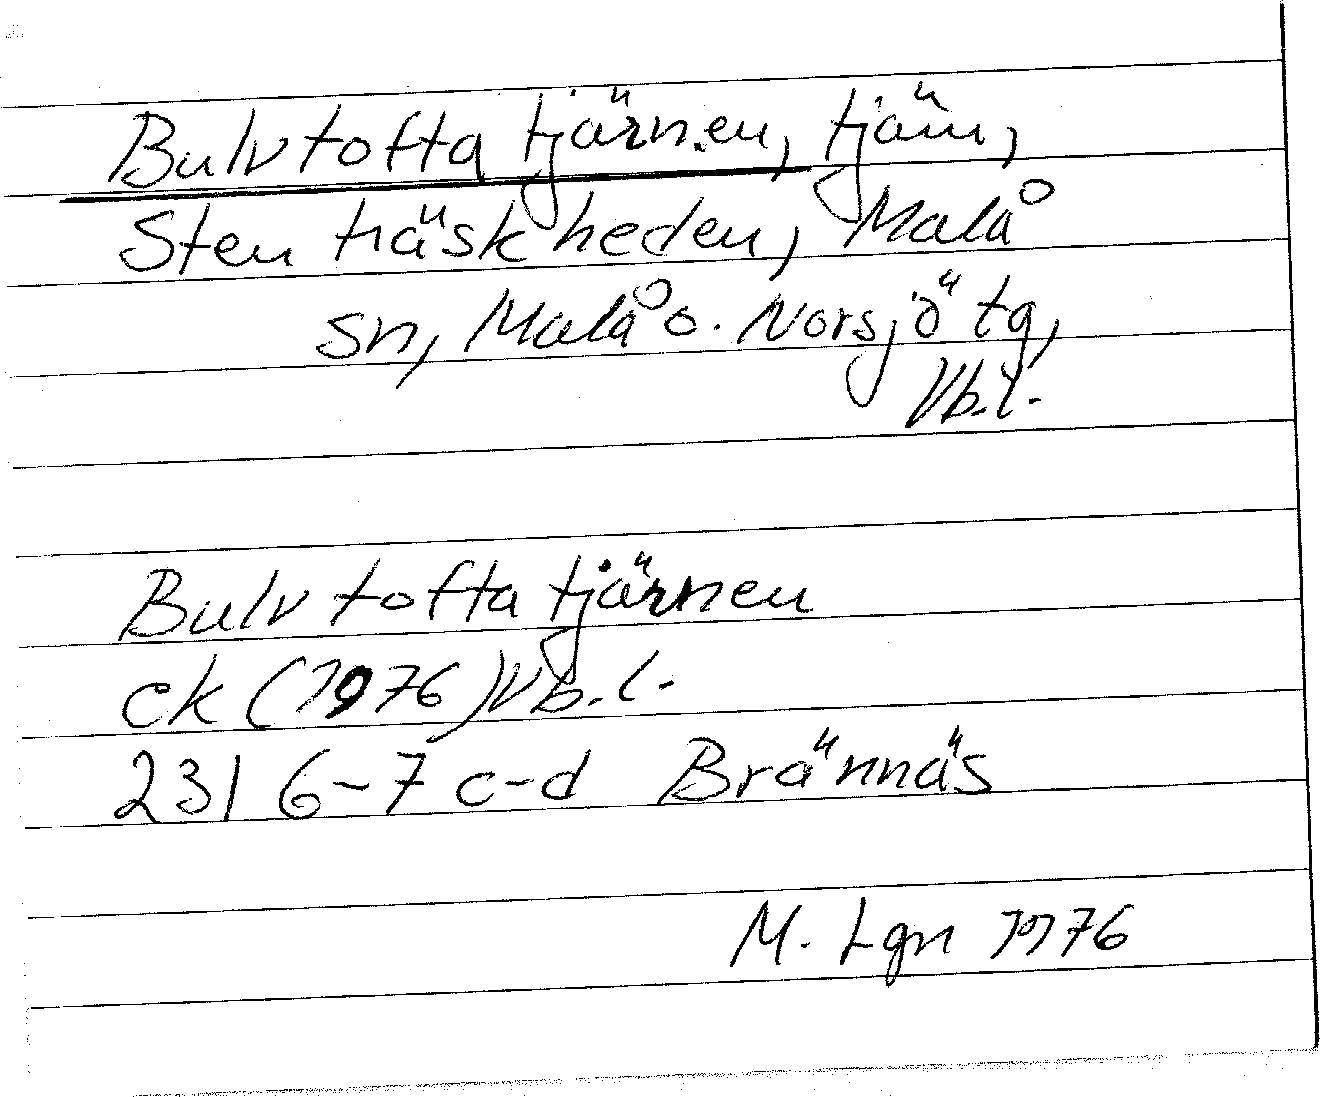 Bulvtoftatjärnen, tjärn,
Stenträskheden, Malå
sn, Malå o. Norsjö tg,
Vb.l.
Bulvtoftatjärnen
ek (1976) Vb.l.
23I 6-7 c-d Brännäs
M. Lgn 1976